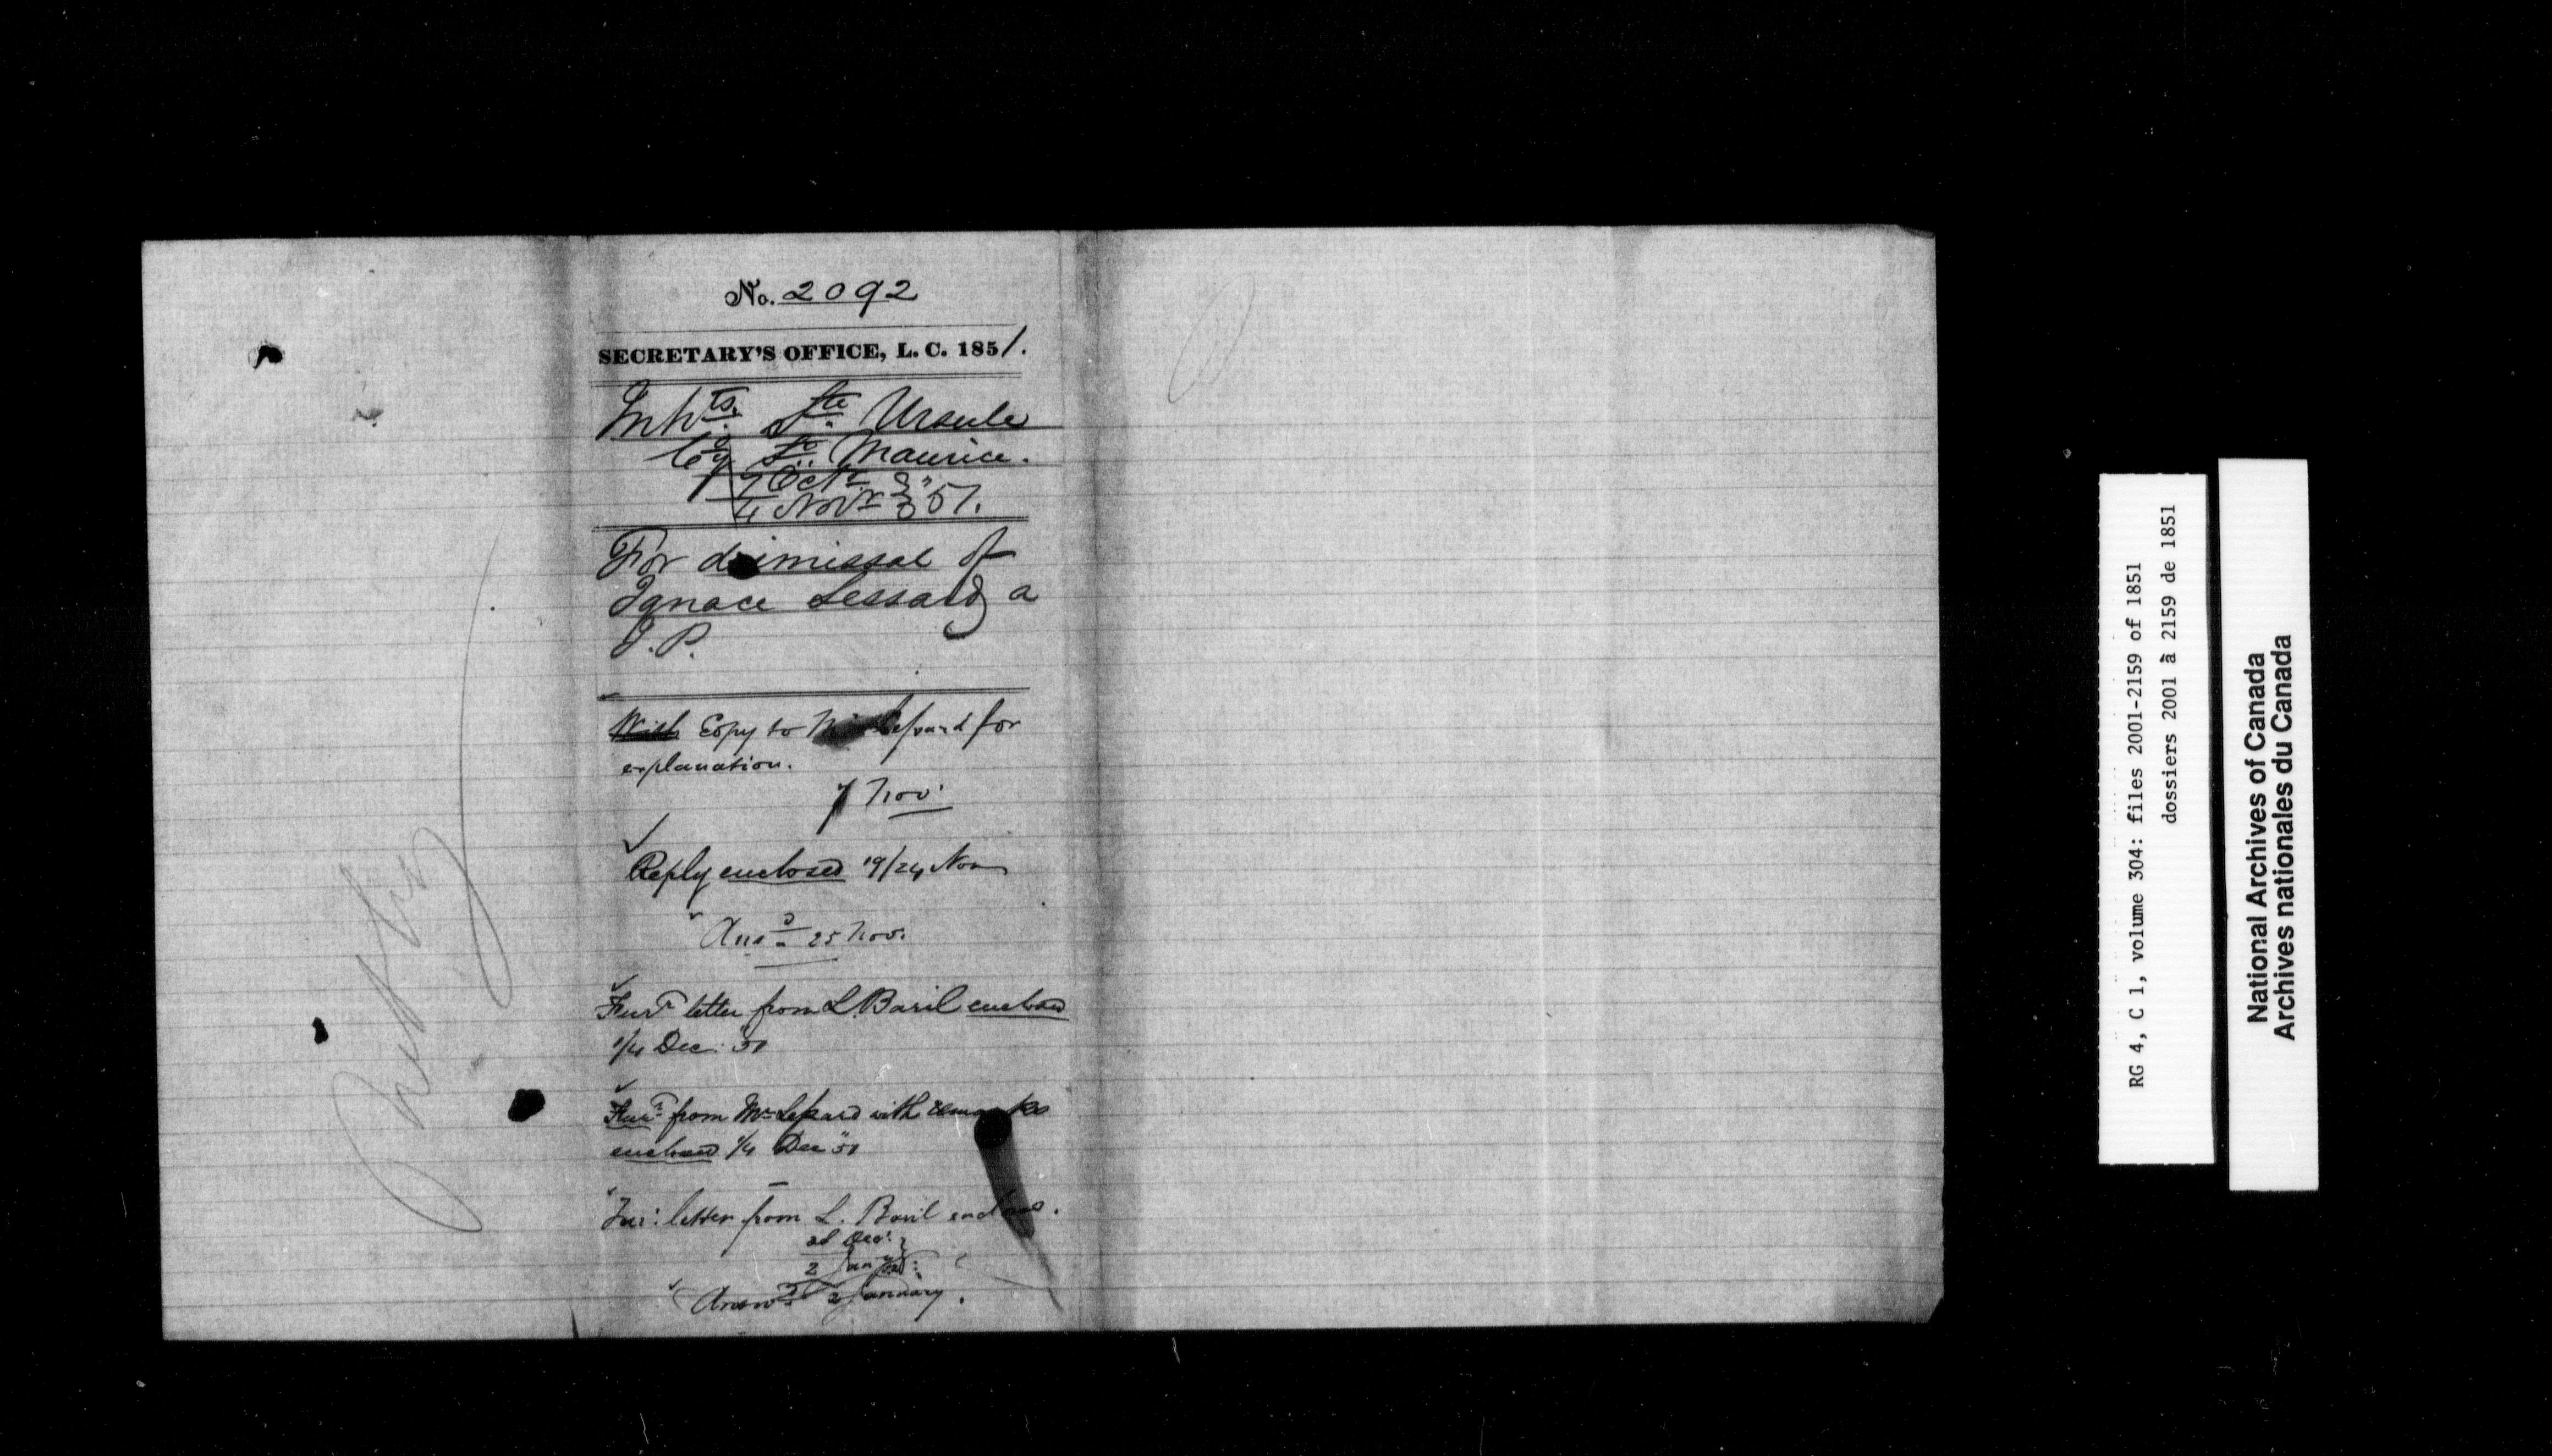 No. 2092
SECRETARY'S OFFICE, L. C. 1851.
Inhts. Ste Ursule
Cy St. Maurice.
7 Octr
4 Novr } "51.
For dismissal of
Ignace Lessard, a
J.P.
With Copy to Mr Lessard for
explanation.
7 Nov.
Reply enclosed 19/24 Nov
Ansd 25 Nov.
Furr letter from L. Baril enclosed
1/4 Dec: 51
Furr from Mr Lessard with remarks
enclosed 1/4 Dec "51
Fur: letter from L. Baril enclosed.
Decr
2 Jany 52
Answd 2 January.
RG 4, C 1, volume 304: files 2001-2159 of 1851
dossiers 2001 à 2159 de 1851
National Archives of Canada
Archives nationales du Canada